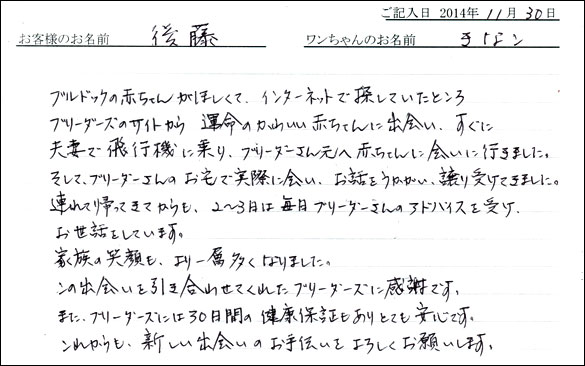 ご記入日 2014年 11月 30日
お客様のお名前 後藤 ワンちゃんのお名前 きなこ
ブルドックの赤ちゃんがほしくて、インターネットで探していたところ
ブリーダーズのサイトから 運命のかわいい赤ちゃんに出会い、すぐに
夫妻で飛行機に乗り、ブリーダーさん元へ赤ちゃんに会いに行きました。
そして、ブリーダーさんのお宅で実際に会い、お話をうかがい、譲り受けてきました。
連れて帰ってきてからも、2〜3日は毎日ブリーダーさんのアドバイスを受け、
お世話をしています。
家族の笑顔も、より一層多くなりました。
この出会いを引き合わせてくれたブリーダーズに感謝です。
また、ブリーダーズには30日間の健康保証もありとても安心です。
これからも、新しい出会いのお手伝いをよろしくお願いします。